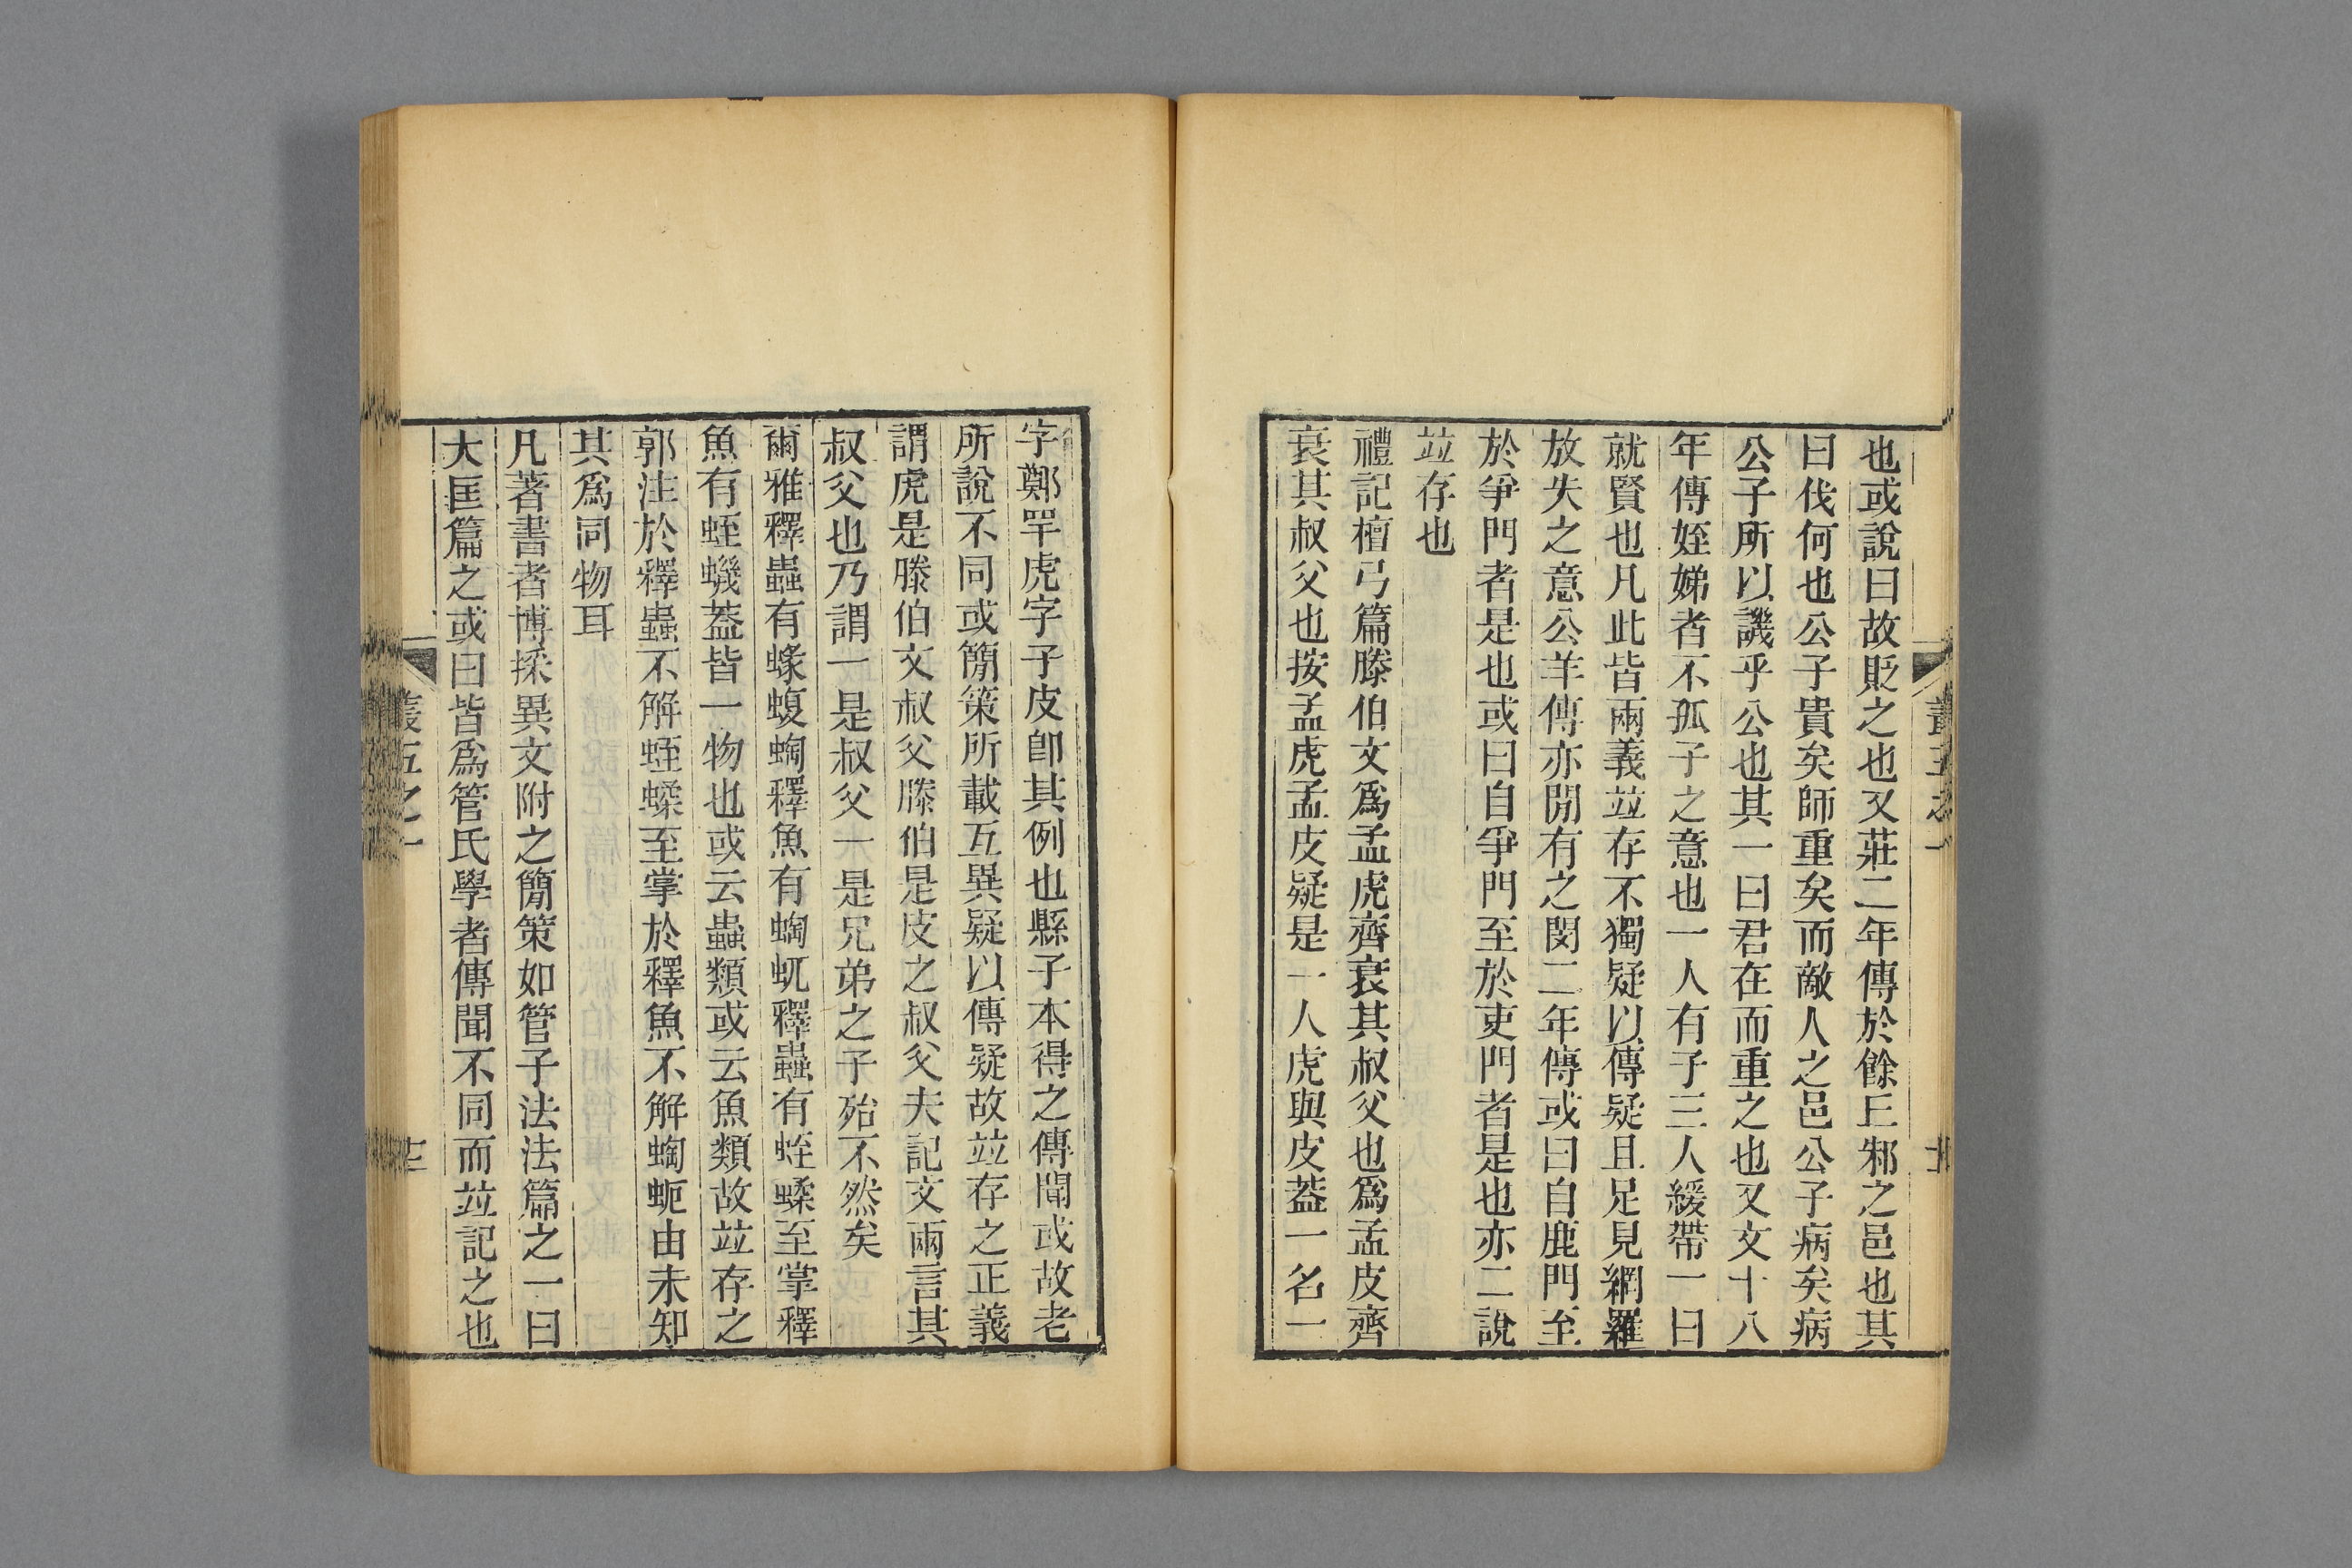 也或說曰故貶之也又莊二年傳於餘丘邾之邑也其
曰伐何也公子貴矣師重矣而敵人之邑公子病矣病
公子所以譏乎公也其一曰君在而重之也又文十八
年傳姪娣者不孤子之意也一人有子三人緩帶一曰
就賢也凡此皆兩義竝存不獨疑以傳疑且足見網羅
放失之意公羊傳亦閒有之閔二年傳或曰自鹿門至
於爭門者是也或曰自爭門至於吏門者是也亦二說
竝存也
禮記檀弓篇滕伯文爲孟虎齊衰其叔父也爲孟皮齊
衰其叔父也按孟虎孟皮疑是一人虎與皮葢一名一
字鄭罕虎字子皮卽其例也縣子本得之傳聞或故老
所說不同或簡策所載互異疑以傳疑故竝存之正義
謂虎是滕伯文叔父滕伯是皮之叔父夫記文兩言其
叔父也乃謂一是叔父一是兄弟之子殆不然矣
爾雅釋蟲有蝝蝮蜪釋魚有蜪蚅釋蟲有蛭蝚至掌釋
魚有蛭蟣葢皆一物也或云蟲類或云魚類故竝存之
郭注於釋蟲不解蛭蝚至掌於釋魚不解蜪蚅由未知
其爲同物耳
凡著書者博采異文附之簡策如管子法法篇之一曰
大匡篇之或曰皆爲管氏學者傳聞不同而竝記之也
叢五之一